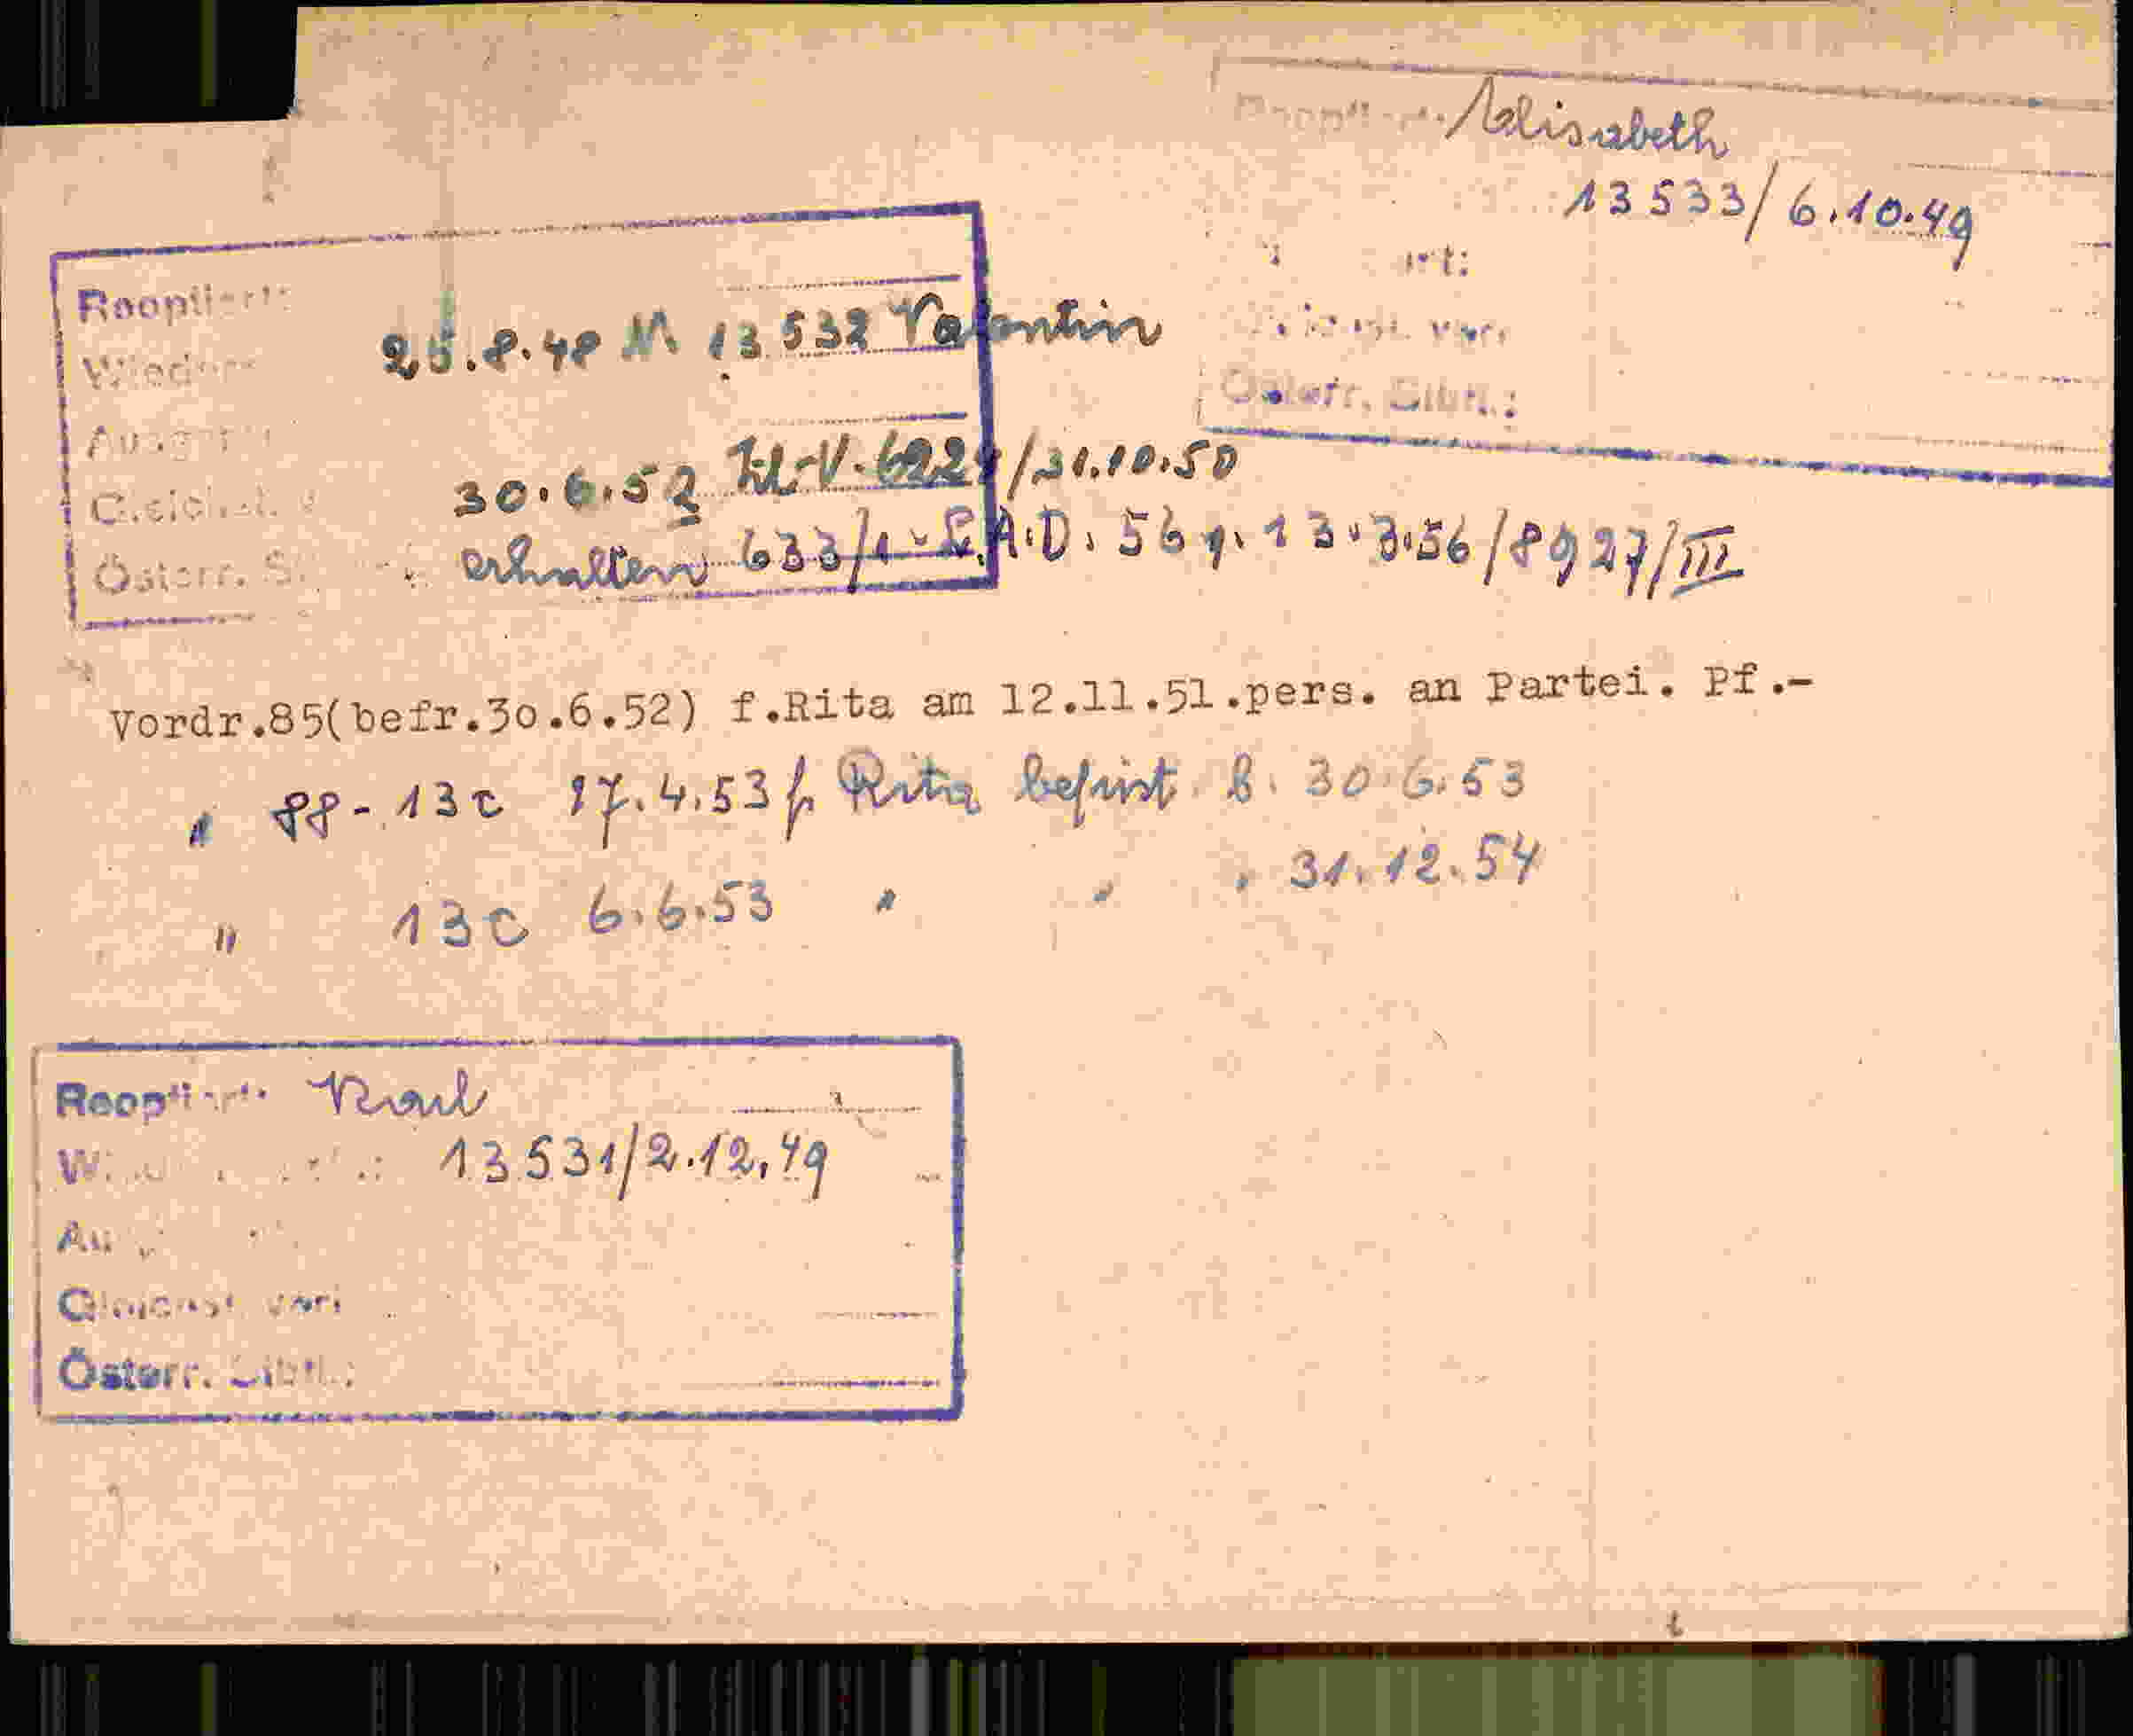 Reoptiert: Elisabeth
13533/6.10.49
Österr. Stbtl.:
Reoptiert:
25.8.48 M 13532 Valentin
30.6.52 Zl-V. 6224/31.10.50
Österr.
erhalten 633/1-L.A.D. 56 v. 13.3.56/8927/III
Vordr.85(befr.30.6.52) f.Rita am 12.11.51.pers. an Partei. Pf.-
" 88-13c 17.4.53 f. Rita befrist. b. 30.6.53
" 13c 6.6.53 " " " 31.12.54
Reoptiert: Karl
13531/2.12.49
Gleichst. vor:
Österr. Stbtl.: